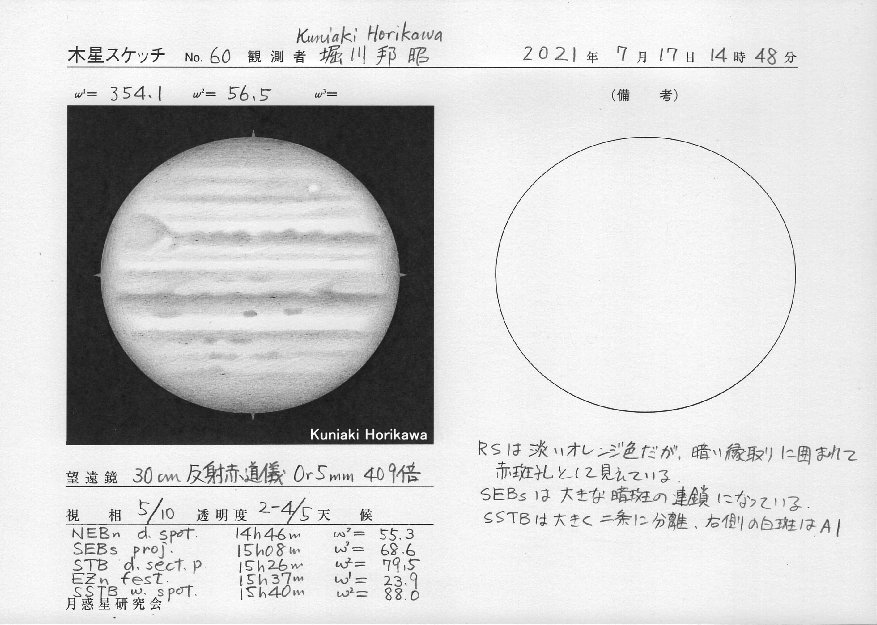 Kuniaki Horikawa
木星スケッチ No. 60 観測者 堀川邦昭 2021年 7月 17日 14時 48分
ω¹= 354.1 ω²= 56.5 ω³=
(備 考)
Kuniaki Horikawa
RSは淡いオレンジ色だが、暗い縁取りに囲まれて
赤斑孔として見えている.
SEBsは大きな暗斑の連鎖になっている.
SSTBは大きく二条に分離、右側の白斑はA1
望遠鏡 30cm 反射赤道儀 Or5mm 409倍
視 相 5/10 透明度 2-4/5 天 候
NEBn d. spot. 14h46m ω²= 55.3
SEBs proj. 15h08m ω²= 68.6
STB d. sect. p 15h26m ω²= 79.5
EZn fest. 15h37m ω¹= 23.9
SSTB w. spot. 15h40m ω²= 88.0
月惑星研究会